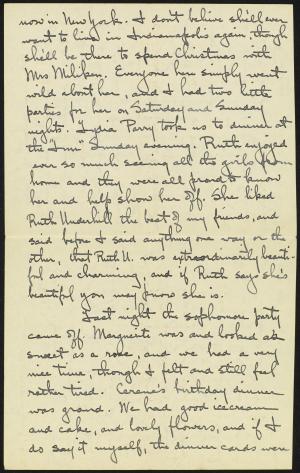 now in New York. I don't belive she'll ever
want to live in Indianapolis again, though
she'll be there to spend Christmas with
Mrs Miliken. Everyone here simply went
wild about her, and I had two little
parties for her on Saturday and Sunday
nights. Lydia Parry took us to dinner at
the "Inn" Sunday evening. Ruth enjoyed
ever so much seeing all the girls from
home and they were all proud to know
her and help show her off. She liked
Ruth Underhill the best of my friends, and
said before I said anything one way or the
other, that Ruth U. was extraordinarily beauti-
ful and charming, and if Ruth says she's
beautiful you may know she is.
Last night the sophomore party
came off. Marguerite was and looked as
sweet as a rose, and we had a very
nice time, though I felt and still feel
rather tired. birthday dinner
was grand. We had good icecream
and cake, and lovely flowers, and if I
do say it myself, the dinner cards were